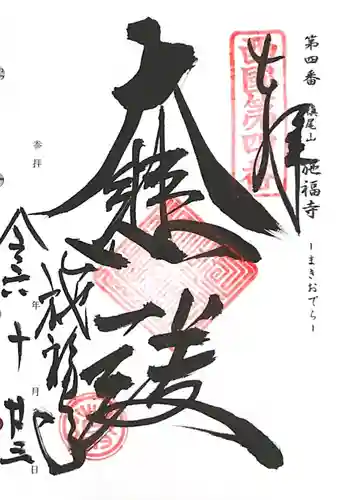 第四番 槇尾山 施福寺 ーまきおでらー
奉拝
西国第四番
大悲殿
施福寺
参拝
令六年十月廿三日